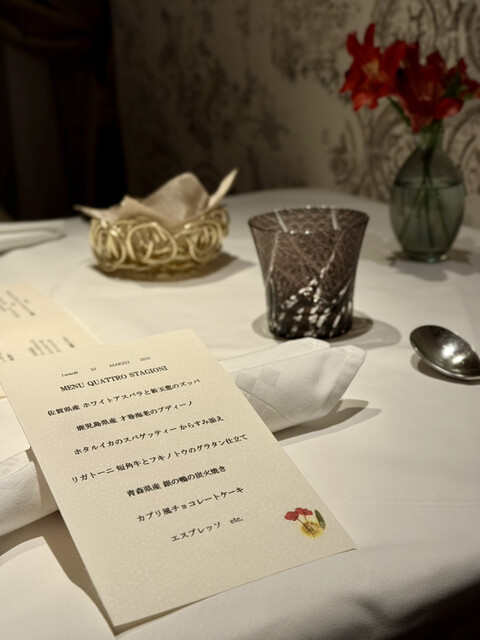 Lunedi 10 MARZO 2025
MENU QUATTRO STAGIONI
佐賀県産 ホワイトアスパラと新玉葱のズッパ
鹿児島県産 才巻海老のブディーノ
ホタルイカのスパゲッティー からすみ添え
リガトーニ 短角牛とフキノトウのグラタン仕立て
青森県産 銀の鴨の炭火焼き
カプリ風チョコレートケーキ
エスプレッソ etc.